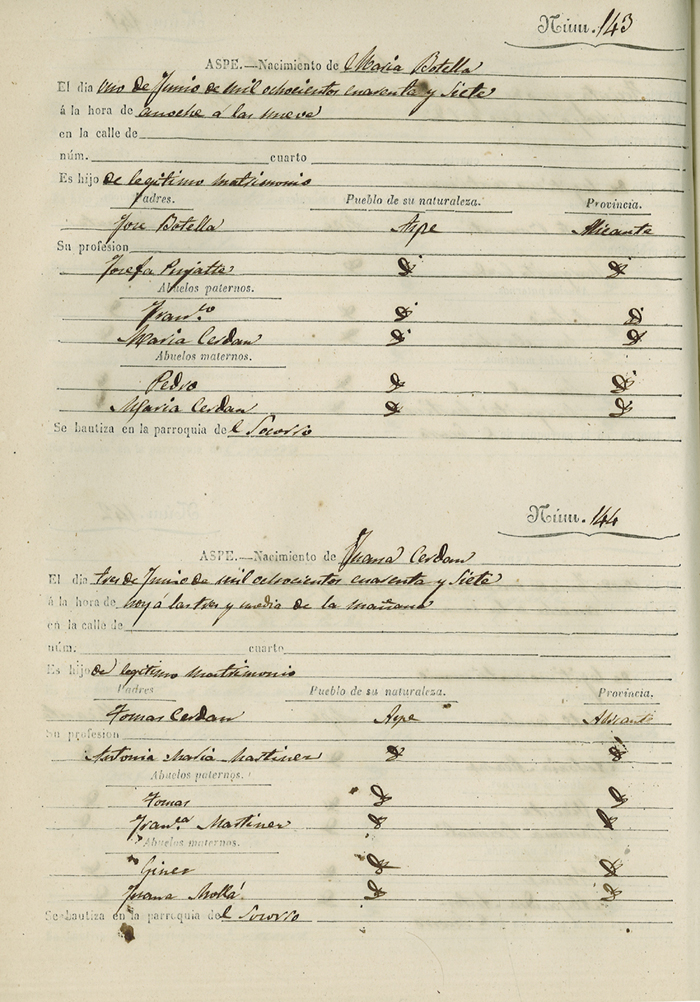 Núm. 143
ASPE.—Nacimiento de Maria Botella
El dia uno de Junio de mil ochocientos cuarenta y Siete
á la hora de anoche á las nueve
en la calle de
núm. cuarto
Es hijo de legitimo matrimonio
Padres. Pueblo de su naturaleza. Provincia.
Jose Botella Aspe Alicante
Su profesion
Josefa Pujalte id id
Abuelos paternos.
Franco id id
Maria Cerdan id id
Abuelos maternos.
Pedro id id
Maria Cerdan id id
Se bautiza en la parroquia del Socorro
Núm. 144
ASPE.—Nacimiento de Juana Cerdan
El dia tres de Junio de mil ochocientos cuarenta y Siete
á la hora de hoy á las tres y media de la mañana
en la calle de
núm. cuarto
Es hijo de legitimo matrimonio
Padres Pueblo de su naturaleza. Provincia.
Tomas Cerdan Aspe Alicante
Su profesion
Antonia Maria Martinez id id
Abuelos paternos.
Tomas id id
Franca Martinez id id
Abuelos maternos.
Giner id id
Juana Mollá id id
Se bautiza en la parroquia del Socorro